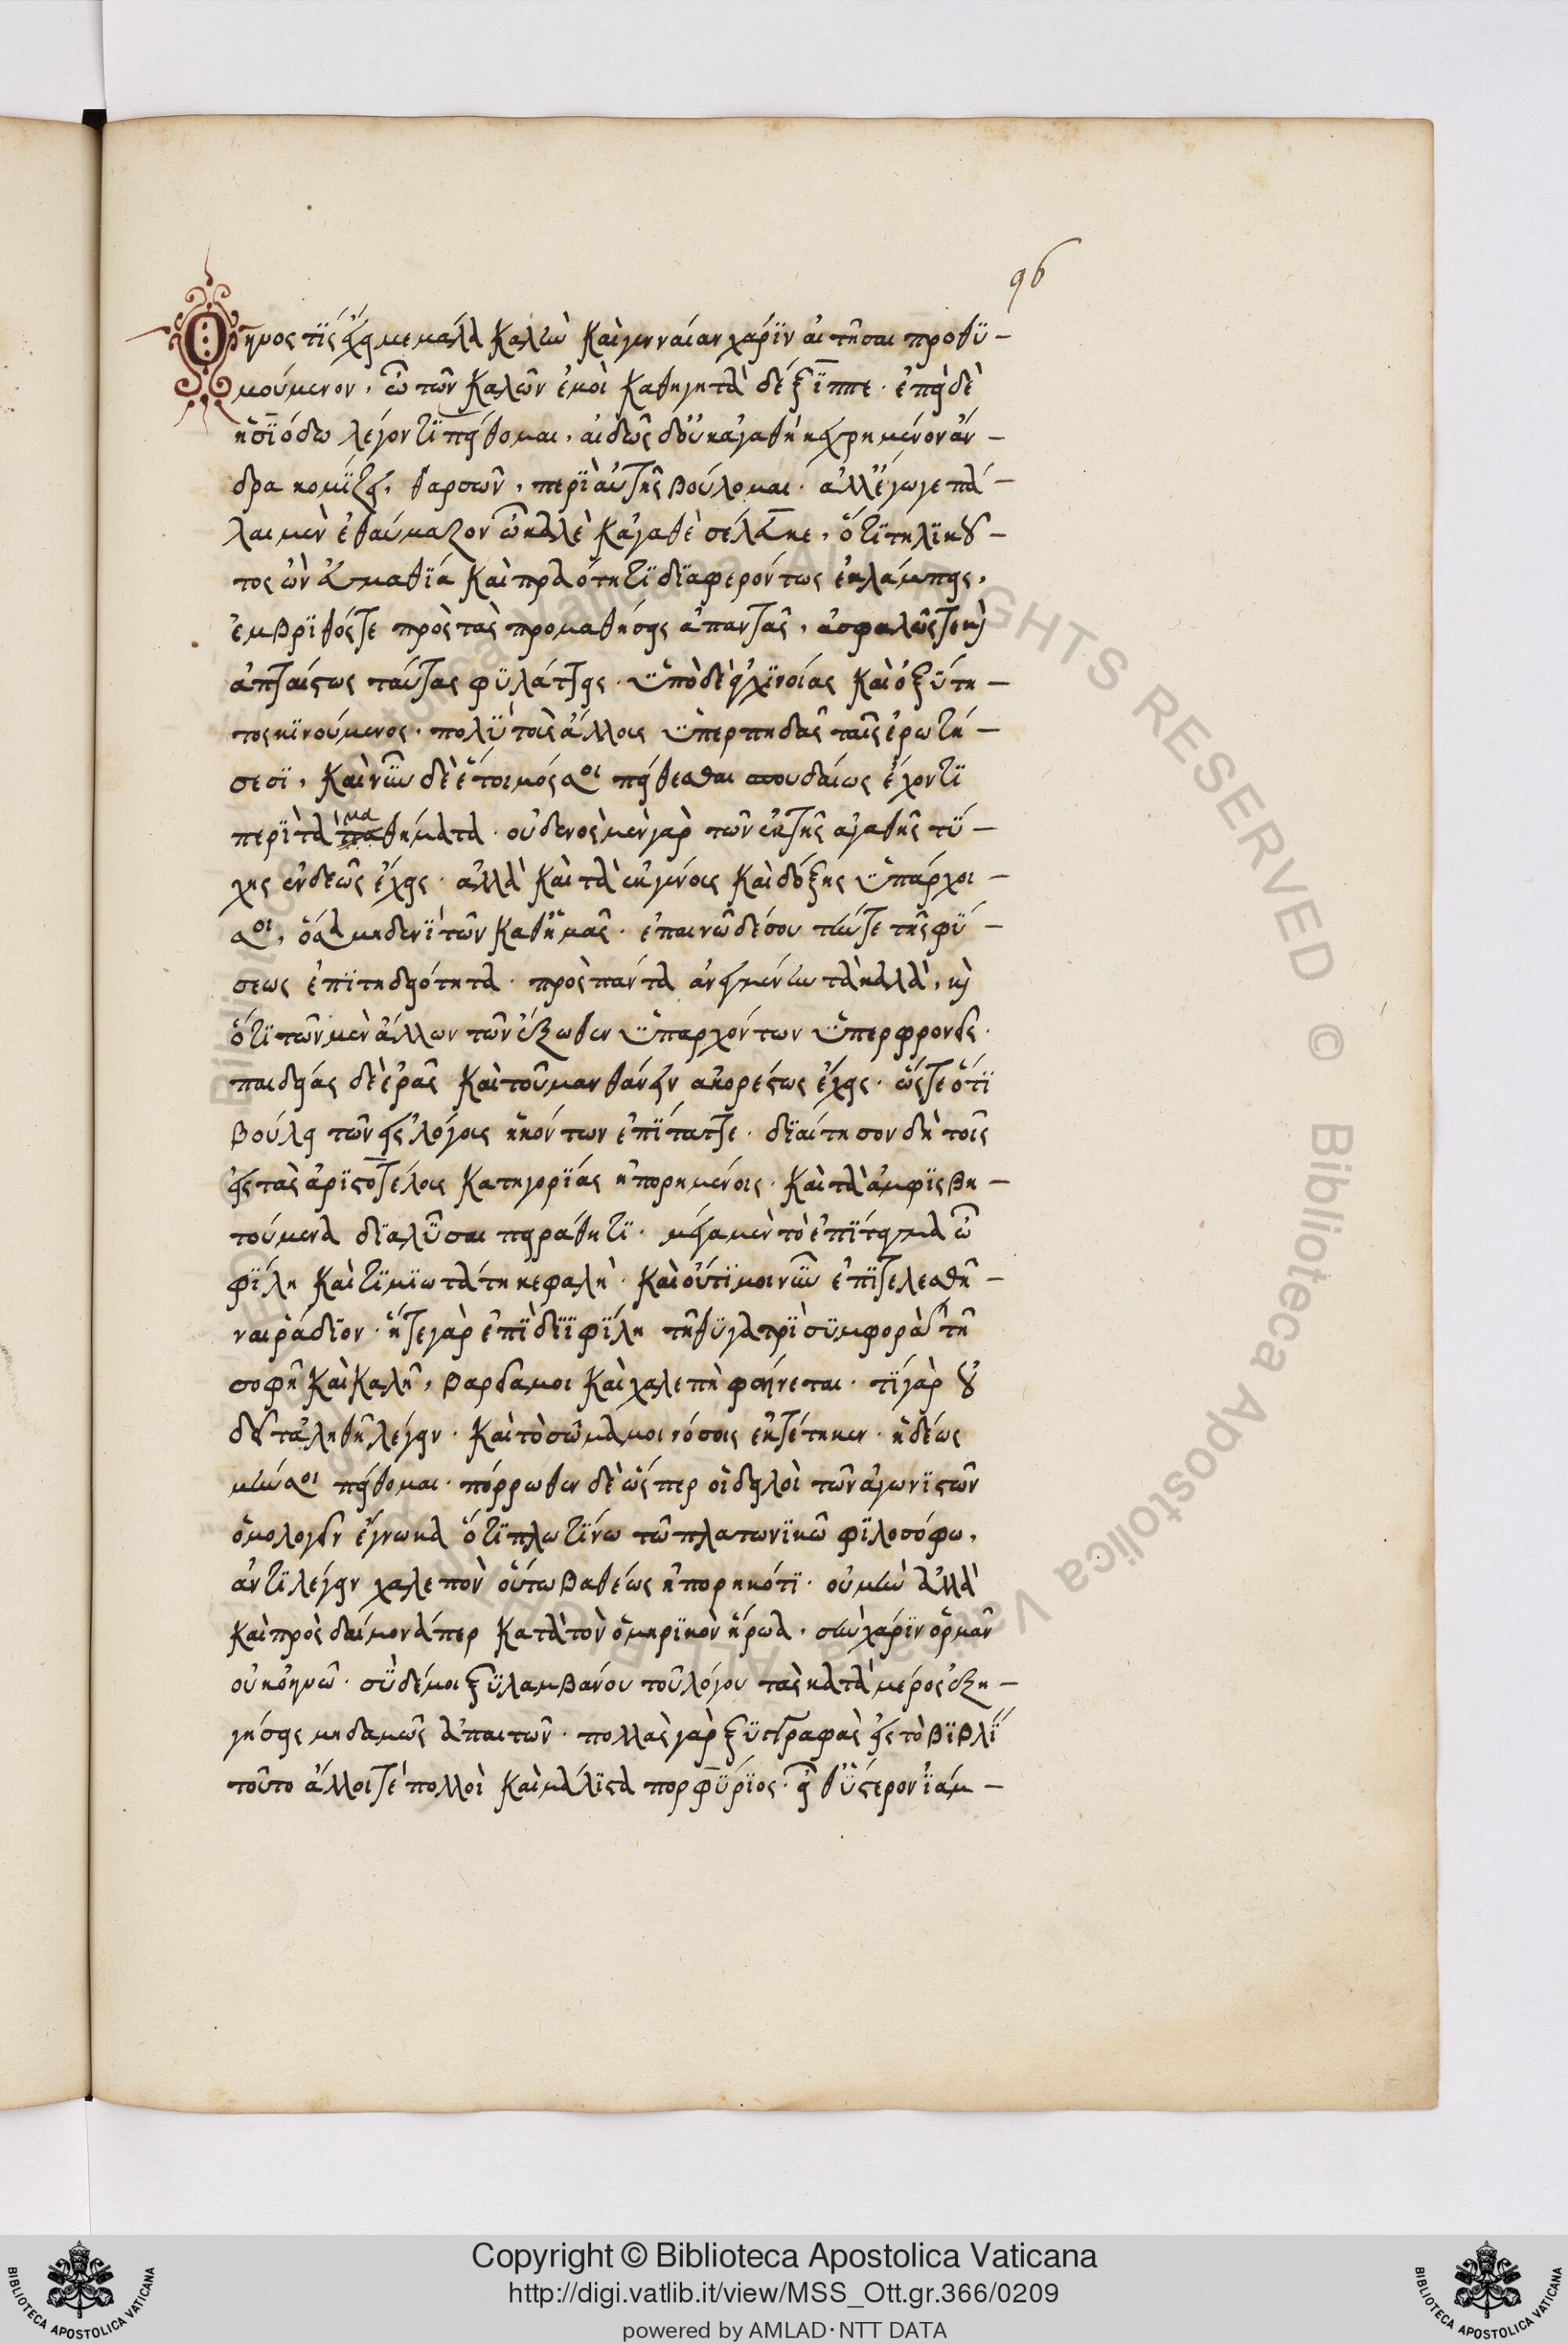 96
Θρῆνος τίς ἔχει με μάλα καλὴν καὶ γενναίαν χάριν αἰτῆσαι προθυ-
μούμενον, ὦ τῶν καλῶν ἐμοὶ καθηγητὰ δέξιππε. ἐπεὶ δὲ
ἡσιόδω λέγοντι πείθομαι, αἰδὼς δ' οὐκ ἀγαθὴ κεχρημένον ἄν-
δρα κομίζει, θαρσῶν, περὶ αὐτῆς βούλομαι. ἀλλ' ἔγωγε πά-
λαι μὲν ἐθαύμαζον ὦ καλὲ κἀγαθὲ σέλευκε, ὅτι τηλικοῦ-
τος ὢν εὐμαθία καὶ πραότητι διαφερόντως ἐκλάμπεις,
ἐμβριθός τε πρὸς τὰς προμαθήσεις ἁπάντας, ἀσφαλῶς τε καὶ
ἀπταίστως ταύτας φυλάττεις. ὑπὸ δὲ ἀγχινοίας καὶ ὀξύτη-
τος κινούμενος, πολὺ τοῖς ἄλλοις ὑπερπηδᾶς ταῖς ἐρωτή-
σεσι, καὶ νῦν δὲ ἕτοιμός σοι πείθεσθαι σπουδαίως ἔχοντι
περὶ τὰ μαθήματα. οὐδενὸς μὲν γὰρ τῶν ἐκ τῆς ἀγαθῆς τύ-
χης ἐνδεῶς ἔχεις. ἀλλὰ καὶ τὰ ἐκ γένους καὶ δόξης ὑπάρχει
σοι, ὅσα μηδενὶ τῶν καθ' ἡμᾶς. ἐπαινῶ δέ σου τήν τε τῆς φύ-
σεως ἐπιτηδειότητα. πρὸς πάντα ἀνειμένην τὰ καλὰ, καὶ
ὅτι τῶν μὲν ἄλλων τῶν ἔξωθεν ὑπαρχόντων ὑπερφρονεῖς.
παιδείας δὲ ἐρᾶς καὶ τοῦ μανθάνειν ἀκορέστως ἔχεις. ὥστε ὅτι
βούλει τῶν εἰς λόγους ἡκόντων ἐπίταττε. διαίτησον δὴ τοῖς
εἰς τὰς ἀριστοτέλους κατηγορίας ἠπορημένοις. καὶ τὰ ἀμφισβη-
τούμενα διαλῦσαι πειράθητι. μέγα μὲν τὸ ἐπίταγμα ὦ
φίλη καὶ τιμιωτάτη κεφαλὴ. καὶ οὔτι μοι νῦν ἐπιτελεσθῆ-
ναι ῥάδιον. ἥ τε γὰρ ἐπὶ διῒ φίλη τῇ θυγατρὶ συμφορὰ τῇ
σοφῇ καὶ καλῇ, βαρεῖά μοι καὶ χαλεπὴ φαίνεται. τί γὰρ οὐ
δεῖ τἀληθῆ λέγειν. καὶ τὸ σῶμά μοι νόσοις ἐκτέτηκεν. ἡδέως
μήν σοι πείθομαι. πόρρωθεν δὲ ὥσπερ οἱ δειλοὶ τῶν ἀγωνιστῶν
ὁμολογεῖν ἔγνωκα ὅτι πλωτίνω τῶ πλατωνικῶ φιλοσόφω,
ἀντιλέγειν χαλεπὸν οὕτω βαθέως ἠπορηκότι. οὐ μὴν ἀλλὰ
καὶ πρὸς δαίμονά περ κατὰ τὸν ὁμηρικὸν ἥρωα, σὴν χάριν ὁρμᾶν
οὐκ ὀκνῶ. σὺ δέ μοι ξυλλαμβάνου τοῦ λόγου τὰς κατὰ μέρος ἐξη-
γήσεις μηδαμῶς ἀπαιτῶν. πολλὰς γὰρ ξυγγραφὰς εἰς τὸ βιβλί
τοῦτο ἄλλοι τε πολλοὶ καὶ μάλιστα πορφύριος. εἶθ' ὕστερον ἰάμ-
Copyright © Biblioteca Apostolica Vaticana
http://digi.vatlib.it/view/MSS_Ott.gr.366/0209
powered by AMLAD·NTT DATA